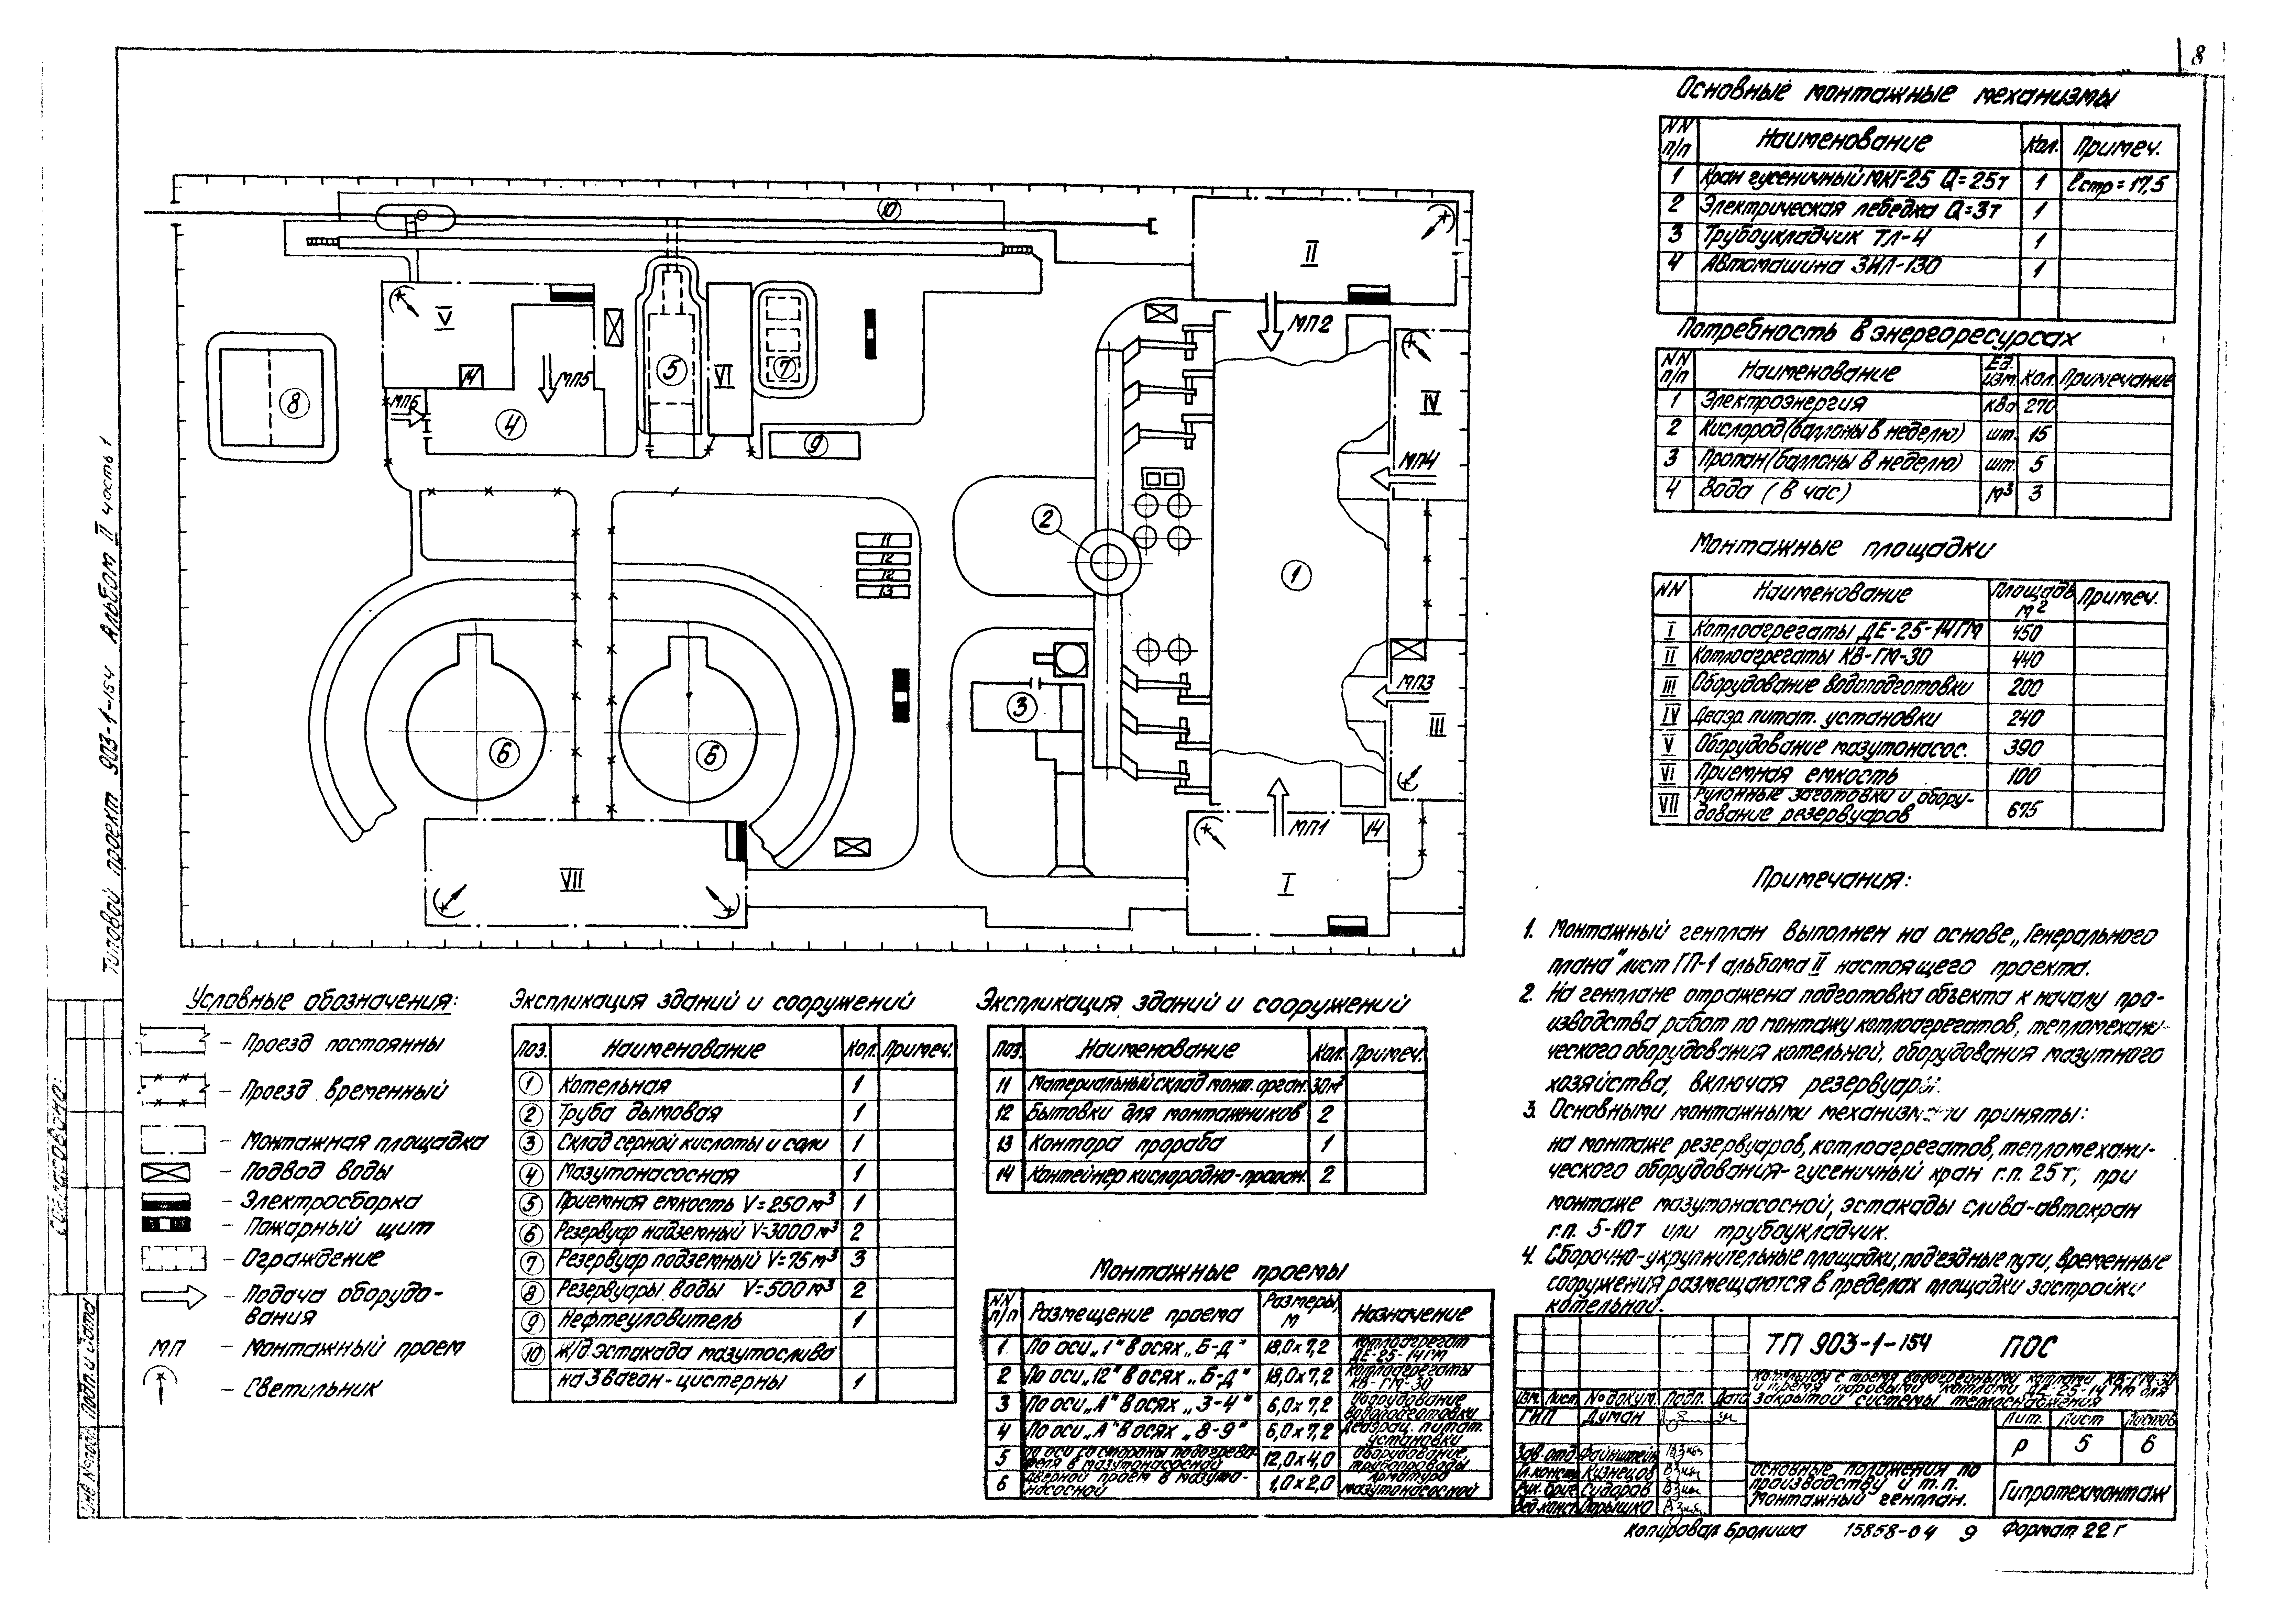 8
Типовой проект 903-1-154 Альбом II часть 1
10
II
V
МП2
5
VI
7
8
14
МП5
МП6
4
9
IV
МП4
2
11
12
12
13
1
3
МП3
III
6
6
МП1
14
VII
I
Основные монтажные механизмы
NN п/п Наименование Кол. Примеч.
1 Кран гусеничный МКГ-25 Q=25т 1 lстр=17,5
2 Электрическая лебедка Q=3т 1
3 Трубоукладчик ТЛ-4 1
4 Автомашина ЗИЛ-130 1
Потребность в энергоресурсах
NN п/п Наименование Ед. изм. Кол. Примечание
1 Электроэнергия ква 270
2 Кислород (баллоны в неделю) шт. 15
3 Пропан (баллоны в неделю) шт. 5
4 Вода (в час) м³ 3
Монтажные площадки
NN Наименование Площадь м² Примеч.
I Котлоагрегаты ДЕ-25-14ГМ 450
II Котлоагрегаты КВ-ГМ-30 440
III Оборудование водоподготовки 200
IV Деаэр. питат. установки 240
V Оборудование мазутонасос. 390
VI Приемная емкость 100
VII Рулонные заготовки и обору-
дование резервуаров 675
Примечания:
1. Монтажный генплан выполнен на основе „Генерального
плана" лист ГП-1 альбома II настоящего проекта.
2. На генплане отражена подготовка объекта к началу про-
изводства работ по монтажу котлоагрегатов, тепломехани-
ческого оборудования котельной, оборудования мазутного
хозяйства, включая резервуары.
3. Основными монтажными механизмами приняты:
на монтаже резервуаров, котлоагрегатов, тепломехани-
ческого оборудования-гусеничный кран г.п. 25т; при
монтаже мазутонасосной, эстакады слива-автокран
г.п. 5-10т или трубоукладчик.
4. Сборочно-укрупнительные площадки, подъездные пути, временные
сооружения размещаются в пределах площадки застройки
котельной.
Условные обозначения:
- Проезд постоянны
- Проезд временный
- Монтажная площадка
- Подвод воды
- Электросборка
- Пожарный щит
- Ограждение
- Подача оборудо-
вания
МП - Монтажный проем
- Светильник
Экспликация зданий и сооружений
Поз. Наименование Кол. Примеч.
1 Котельная 1
2 Труба дымовая 1
3 Склад серной кислоты и соли 1
4 Мазутонасосная 1
5 Приемная емкость V=250м³ 1
6 Резервуар надземный V=3000м³ 2
7 Резервуар подземный V=75м³ 3
8 Резервуары воды V=500м³ 2
9 Нефтеуловитель 1
10 Ж/д эстакада мазутослива
на 3 вагон-цистерны 1
Экспликация зданий и сооружений
Поз. Наименование Кол. Примеч.
11 Материальный склад монт. орган. 30м²
12 Бытовки для монтажников 2
13 Контора прораба 1
14 Контейнер кислородно-пропан. 2
Монтажные проемы
NN п/п Размещение проема Размеры, м Назначение
1 По оси „1" в осях „Б-Д" 18,0х7,2 Котлоагрегат ДЕ-25-14ГМ
2 По оси „12" в осях „Б-Д" 18,0х7,2 Котлоагрегаты КВ-ГМ-30
3 По оси „А" в осях „3-4" 6,0х7,2 Оборудование водоподготовки
4 По оси „А" в осях „8-9" 6,0х7,2 Деаэрац. питат. установки
5 По оси со стороны подогрева-
теля в мазутонасосной 12,0х4,0 Оборудование, трубопроводы
6 Дверной проем в мазуто-
насосной 1,0х2,0 Арматура мазутонасосной
ТП 903-1-154 ПОС
Котельная с тремя водогрейными котлами КВ-ГМ-30
и тремя паровыми котлами ДЕ-25-14 ГМ для
закрытой системы теплоснабжения
Изм. Лист № докум. Подп. Дата
ГИП Думан
Зав. отд. Файнштейн
Гл. констр. Кузнецов
Рук. бриг. Сидоров
Вед. конст.
Лит. Лист Листов
Р 5 6
Основные положения по
производству и т.п.
Монтажный генплан.
Гипротехмонтаж
Копировал Бролиша 15858-04 9 Формат 22г
Согласовано:
Инв № подл. Подп. и дата